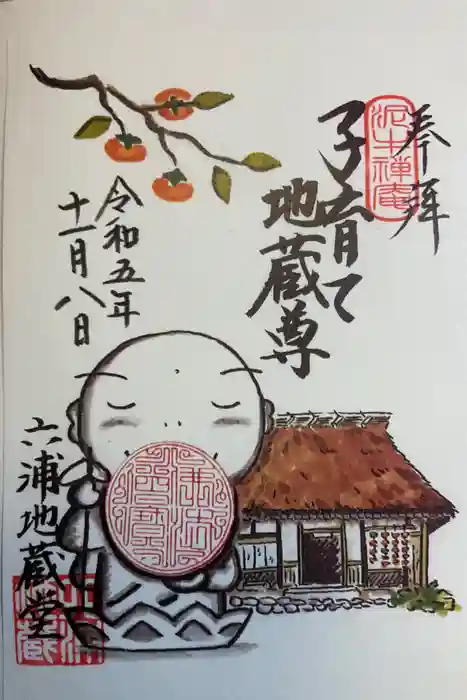 奉拝
子育て
地蔵尊
令和五年
十一月八日
六浦地蔵堂